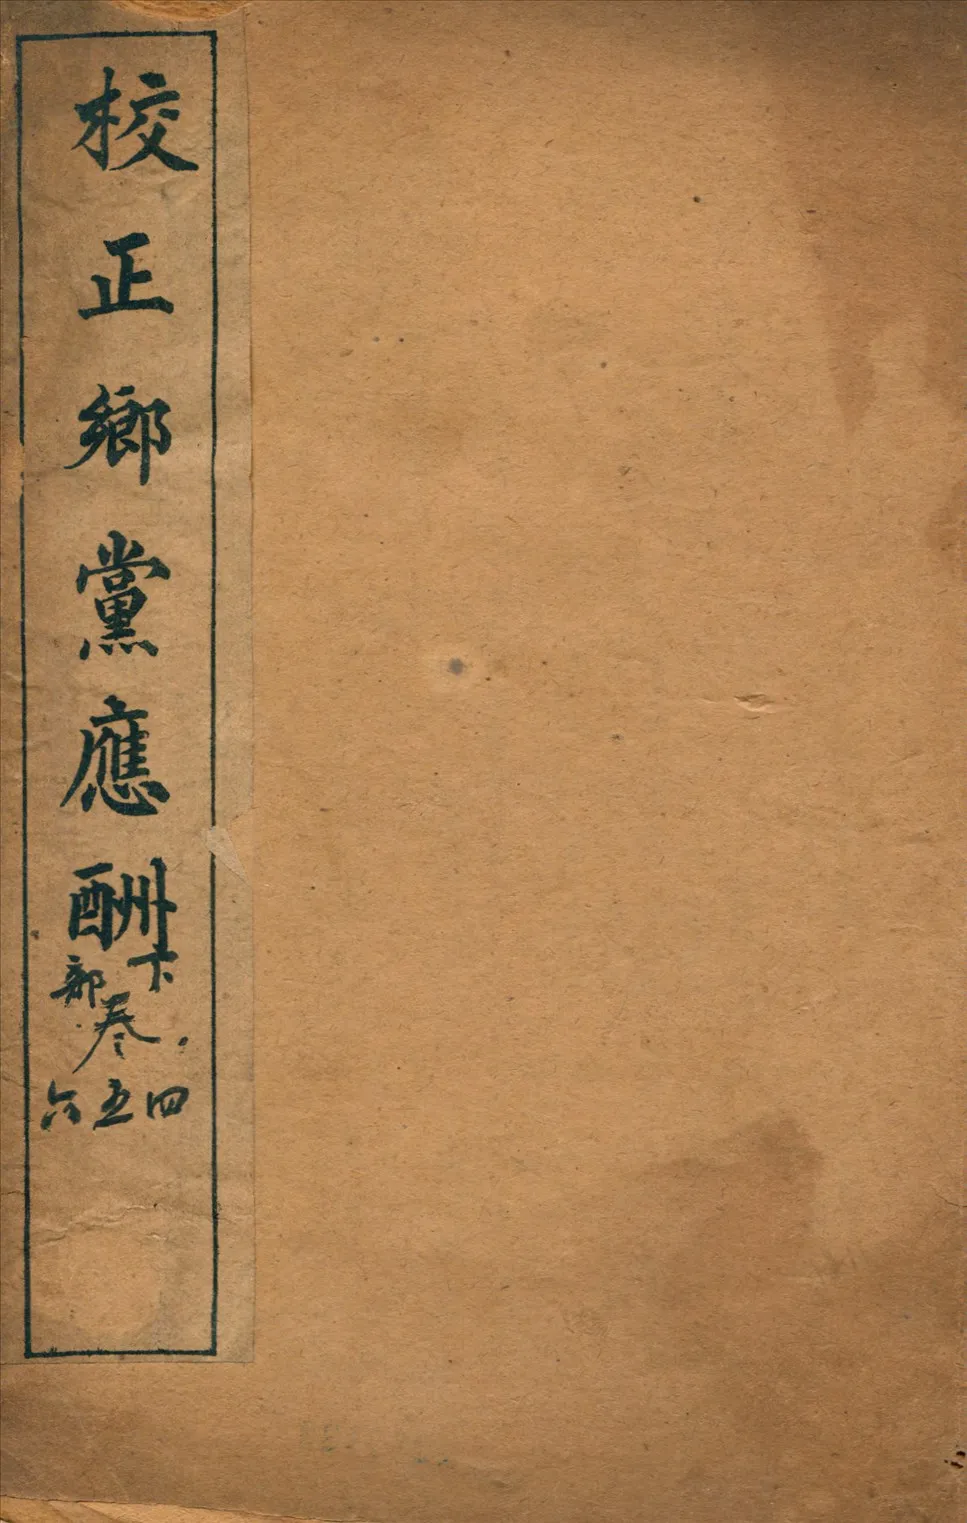 校正鄉黨應酬
下部
卷
四五六